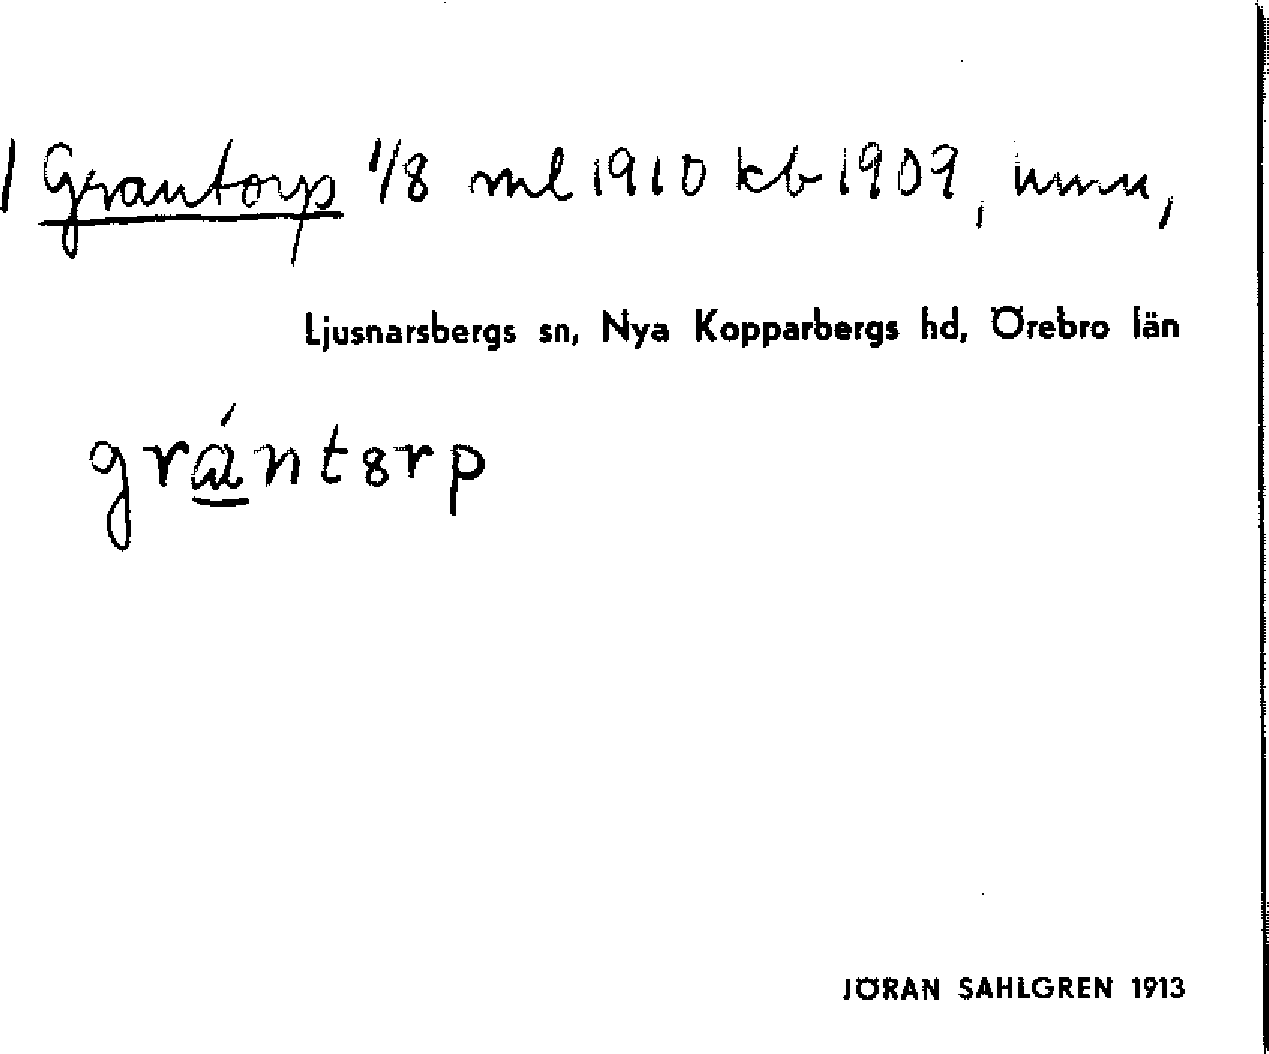 | Grantorp 1/8 ml 1910 kb 1909,
Ljusnarsbergs sn, Nya Kopparbergs hd, Örebro län
grántȣrp
JÖRAN SAHLGREN 1913